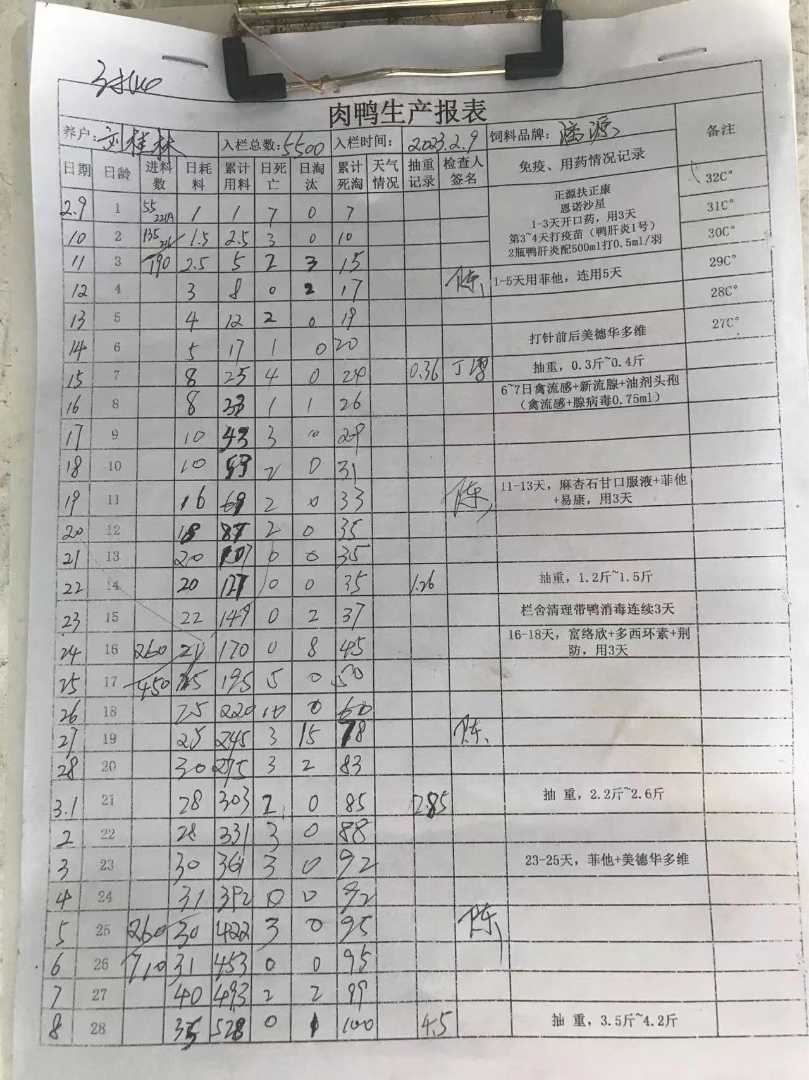 肉鸭生产报表
养户: 刘桂林 入栏总数: 5500 入栏时间: 2023.2.9 饲料品牌: 备注
日期 日龄 进料数 日耗料 累计用料 日死亡 日淘汰 累计死淘 天气情况 抽重记录 检查人签名 免疫、用药情况记录
32C°
2.9 1 55 1 1 7 0 7 正源扶正康 31C°
恩诺沙星
1-3天开口药，用3天
10 2 135 1.5 2.5 3 0 10 第3~4天打疫苗（鸭肝炎1号） 30C°
2瓶鸭肝炎配500ml打0.5ml/羽
11 3 190 2.5 5 2 3 15 29C°
12 4 3 8 0 2 17 陈 1-5天用菲他，连用5天 28C°
13 5 4 12 2 0 19 27C°
14 6 5 17 1 0 20 打针前后美德华多维
15 7 8 25 4 0 24 0.36 抽重，0.3斤~0.4斤
16 8 8 33 1 1 26 6~7日禽流感+新流腺+油剂头孢
（禽流感+腺病毒0.75ml）
17 9 10 43 3 0 29
18 10 10 53 2 0 31
19 11 16 69 2 0 33 陈 11-13天，麻杏石甘口服液+菲他
+易康，用3天
20 12 18 87 2 0 35
21 13 20 107 0 0 35
22 14 20 127 0 0 35 1.26 抽重，1.2斤~1.5斤
23 15 22 149 0 2 37 栏舍清理带鸭消毒连续3天
24 16 260 21 170 0 8 45 16-18天，富络欣+多西环素+荆
防，用3天
25 17 450 25 195 5 0 50
26 18 25 220 10 0 60
27 19 25 245 3 15 78 陈
28 20 30 275 3 2 83
3.1 21 28 303 2 0 85 2.85 抽 重，2.2斤~2.6斤
2 22 28 331 3 0 88
3 23 30 361 3 0 92 23-25天，菲他+美德华多维
4 24 31 392 0 0 92
5 25 260 30 422 3 0 95 陈
6 26 710 31 453 0 0 95
7 27 40 493 2 2 99
8 28 35 528 0 1 100 4.5 抽 重，3.5斤~4.2斤